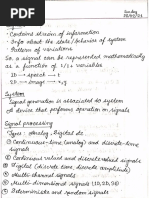 Sunday
- Contains stream of information
- Info about the state/behavior of system
- Pattern of variations
So, a signal can be represented mathematically
as a function of 1/2+ variables
1D → speech → t
2D → image → x,y
System
Signal generation is associated to system
A device that performs operation on signals
Signal processing
Types: Analog, Digital etc
① Continuous-time (analog) and discrete-time
signals
② Continuous valued and discrete valued signals
③ Digital (Discrete time, discrete amplitude)
④ Multi-channel signals
⑤ Multi-dimensional signals (1D, 2D, 3D)
⑥ Deterministic and random signals